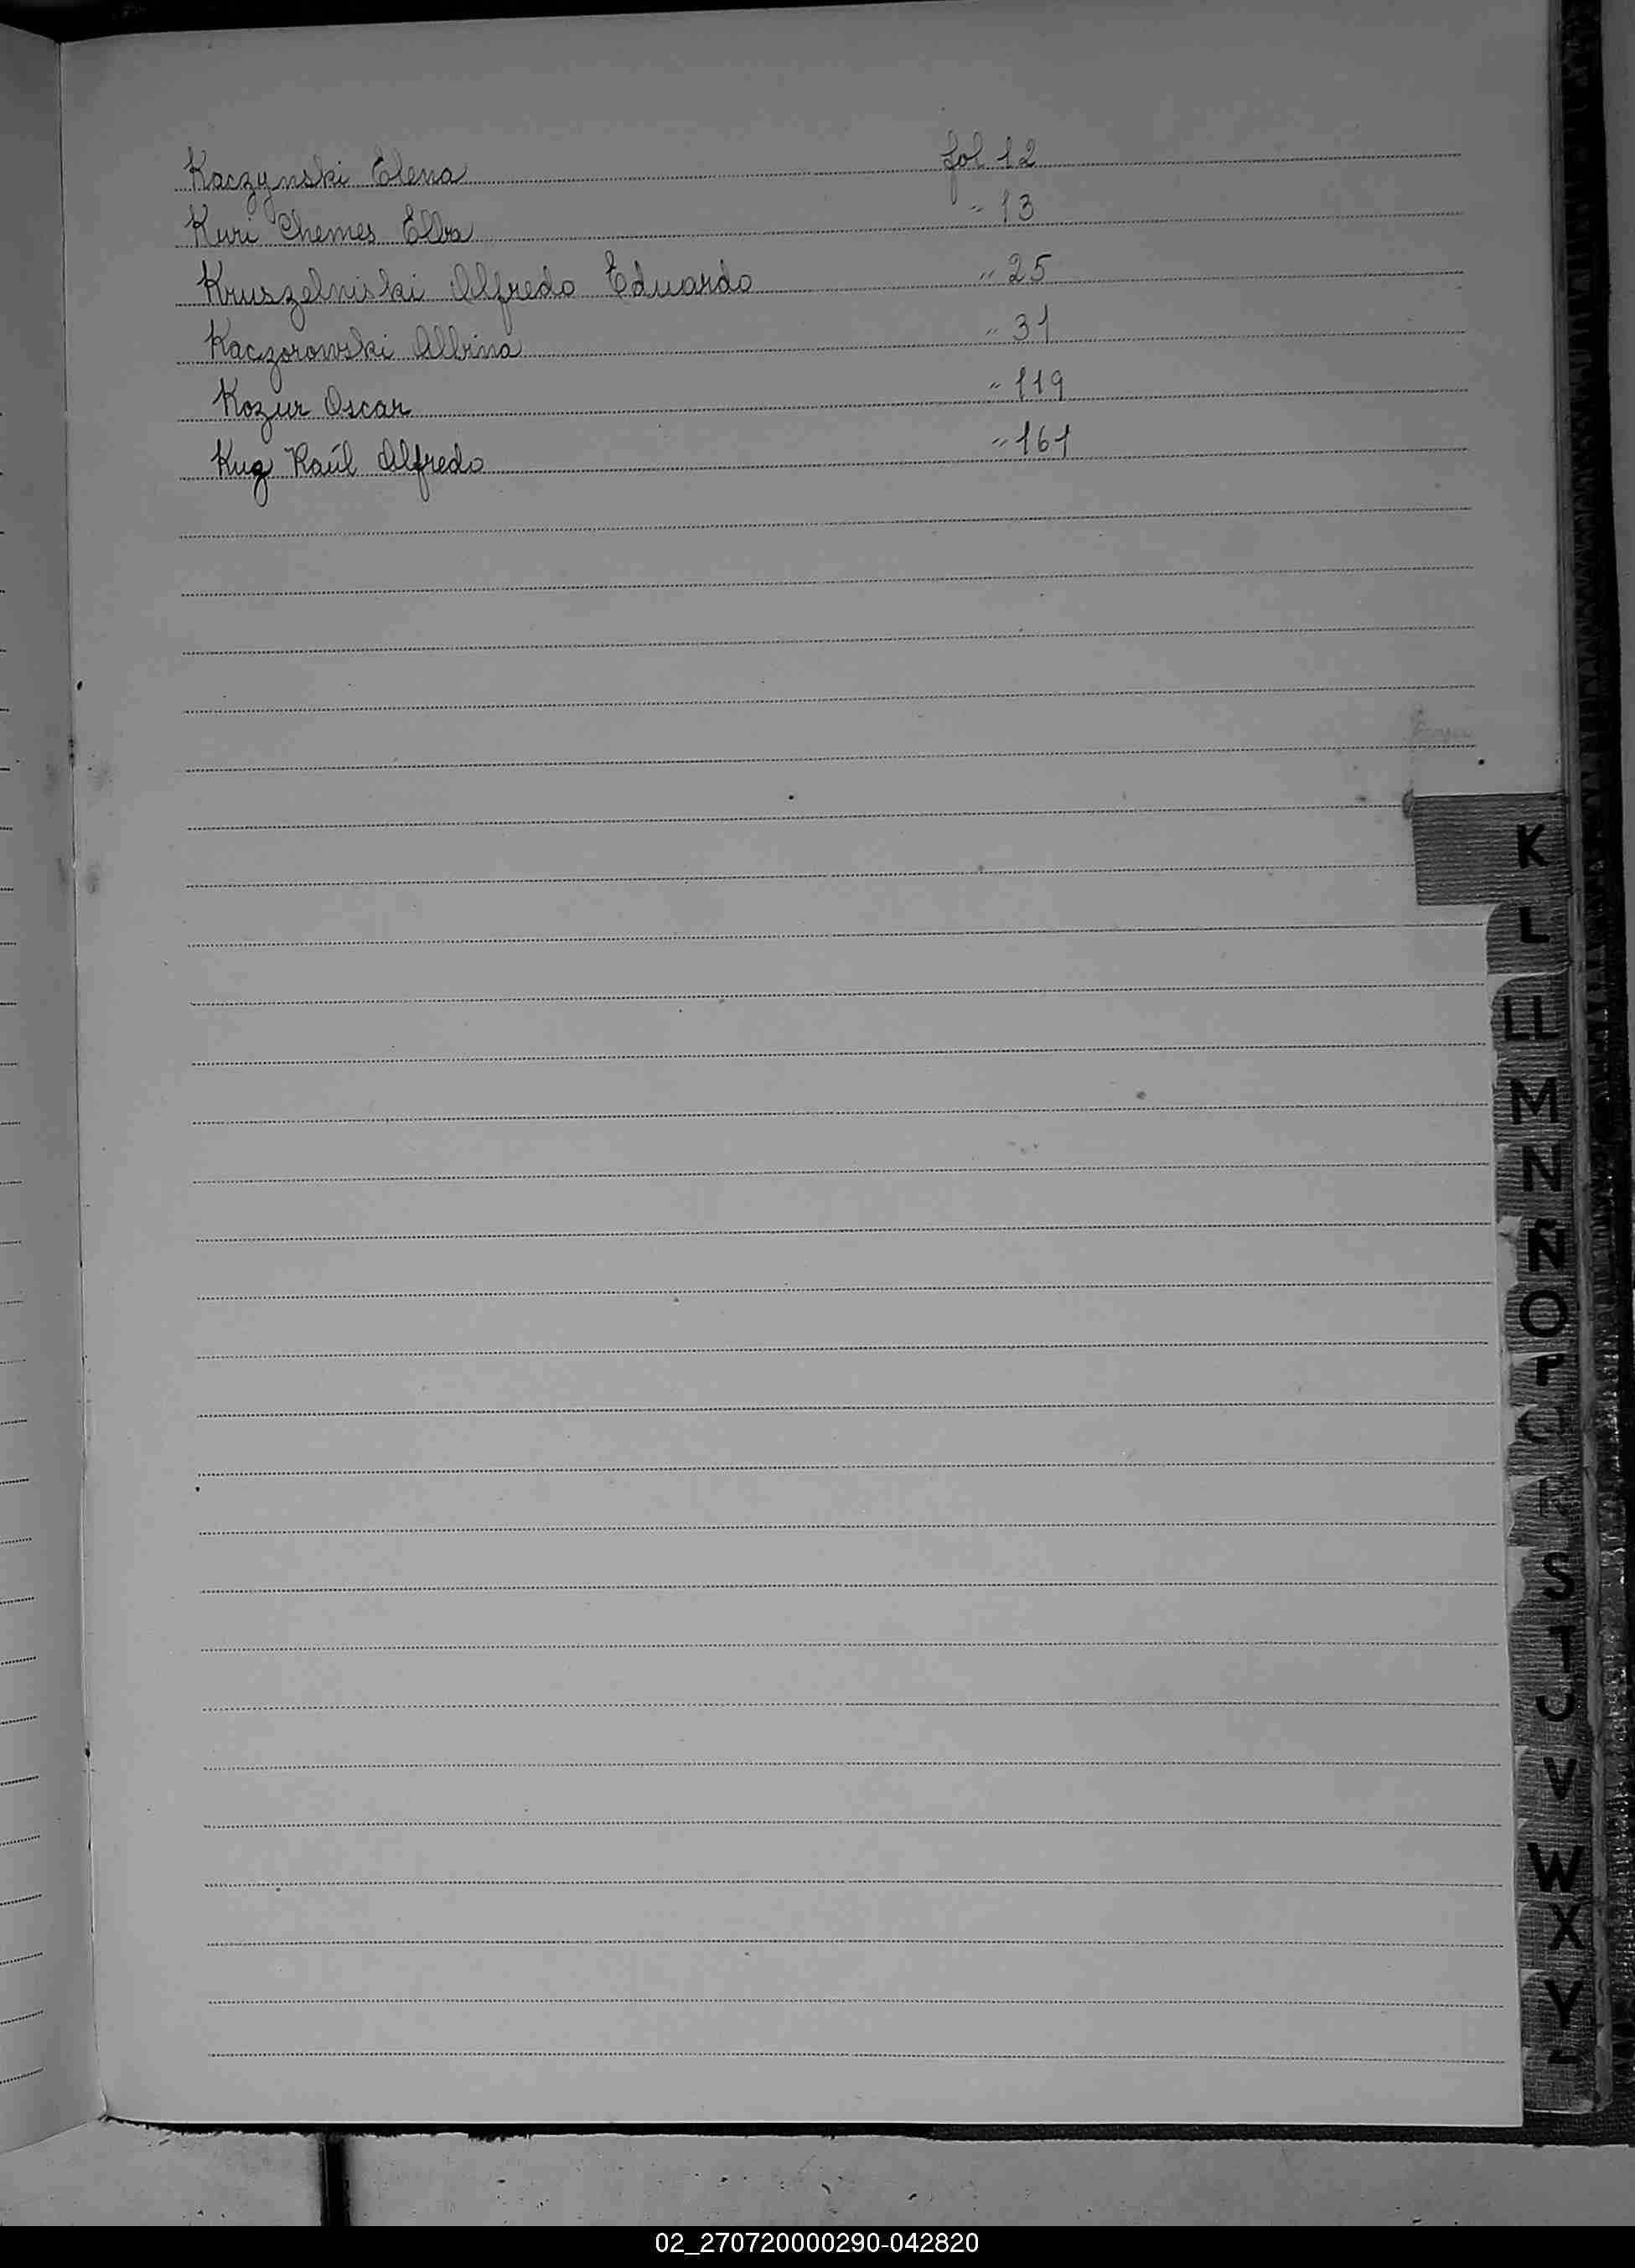 Kaczynski Elena fol 12
Kuri Chemes Elba " 13
Kruszelniski Alfredo Eduardo " 25
Kaczorowski Albina " 31
Kozur Oscar " 119
Kuz Raúl Alfredo " 161
K
L
LL
M
N
Ñ
O
P
Q
R
S
T
U
V
W
X
Y
02_270720000290-042820